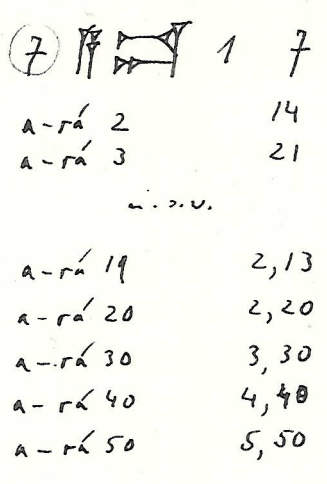 7 𒀀𒁺 1 7
a-rá 2 14
a-rá 3 21
u.s.w.
a-rá 19 2,13
a-rá 20 2,20
a-rá 30 3,30
a-rá 40 4,40
a-rá 50 5,50